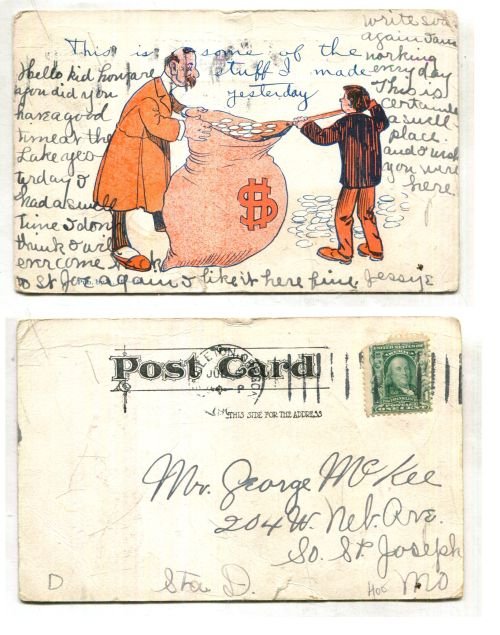 This is some of the
stuff I made
yesterday
Hello kid how are
you did you
have a good
time at the
Lake yes-
terday I
had a swell
time I don
think I will
ever come back
to St Joe again I like it here fine. Jessye
write soon
again I am
working
every day
This is
certainly
a swell
place.
and I wish
you were
here.
$
Post Card
THIS SIDE FOR THE ADDRESS
Mr. George McKee
204 W. Neb. Ave.
So. St. Joseph
Mo
Sta D.
D